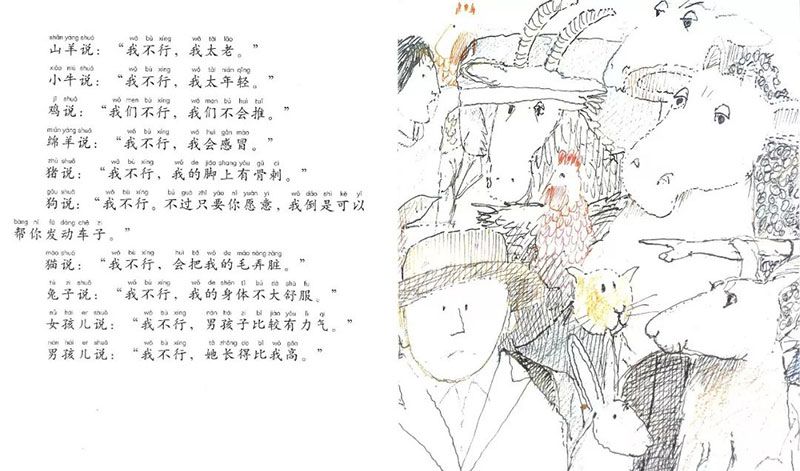 shān yáng shuō wǒ bù xíng wǒ tài lǎo
山羊说：“我不行，我太老。”
xiǎo niú shuō wǒ bù xíng wǒ tài nián qīng
小牛说：“我不行，我太年轻。”
jī shuō wǒ men bù xíng wǒ men bú huì tuī
鸡说：“我们不行，我们不会推。”
mián yáng shuō wǒ bù xíng wǒ huì gǎn mào
绵羊说：“我不行，我会感冒。”
zhū shuō wǒ bù xíng wǒ de jiǎo shang yǒu gǔ cì
猪说：“我不行，我的脚上有骨刺。”
gǒu shuō wǒ bù xíng bú guò zhǐ yào nǐ yuàn yì wǒ dào shì kě yǐ
狗说：“我不行。不过只要你愿意，我倒是可以
bāng nǐ fā dòng chē zi
帮你发动车子。”
māo shuō wǒ bù xíng huì bǎ wǒ de máo nòng zāng
猫说：“我不行，会把我的毛弄脏。”
tù zi shuō wǒ bù xíng wǒ de shēn tǐ bú dà shū fu
兔子说：“我不行，我的身体不大舒服。”
nǚ hái er shuō wǒ bù xíng nán hái zi bǐ jiào yǒu lì qi
女孩儿说：“我不行，男孩子比较有力气。”
nán hái er shuō wǒ bù xíng tā zhǎng de bǐ wǒ gāo
男孩儿说：“我不行，她长得比我高。”